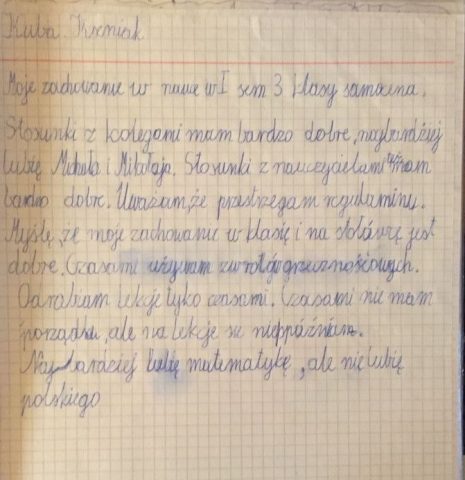 Kuba Krzniak
Moje zachowanie w nauce w I sem 3 klasy samoocena.
Stosunki z kolegami mam bardzo dobre, najbardziej
lubię Michała i Mikołaja. Stosunki z nauczycielami mam
bardzo dobre. Uważam, że przestrzegam regulaminu.
Myślę, że moje zachowanie w klasie i na stołówce jest
dobre. Czasami używam zwrotów grzecznościowych.
Odrabiam lekcje tyko czasami. Czasami nie mam
porządku, ale na lekcje się niespóźniam.
Najbardziej lubię matematykę, ale nielubię
polskiego